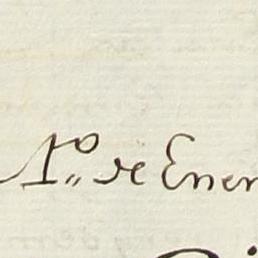 1º de Ener